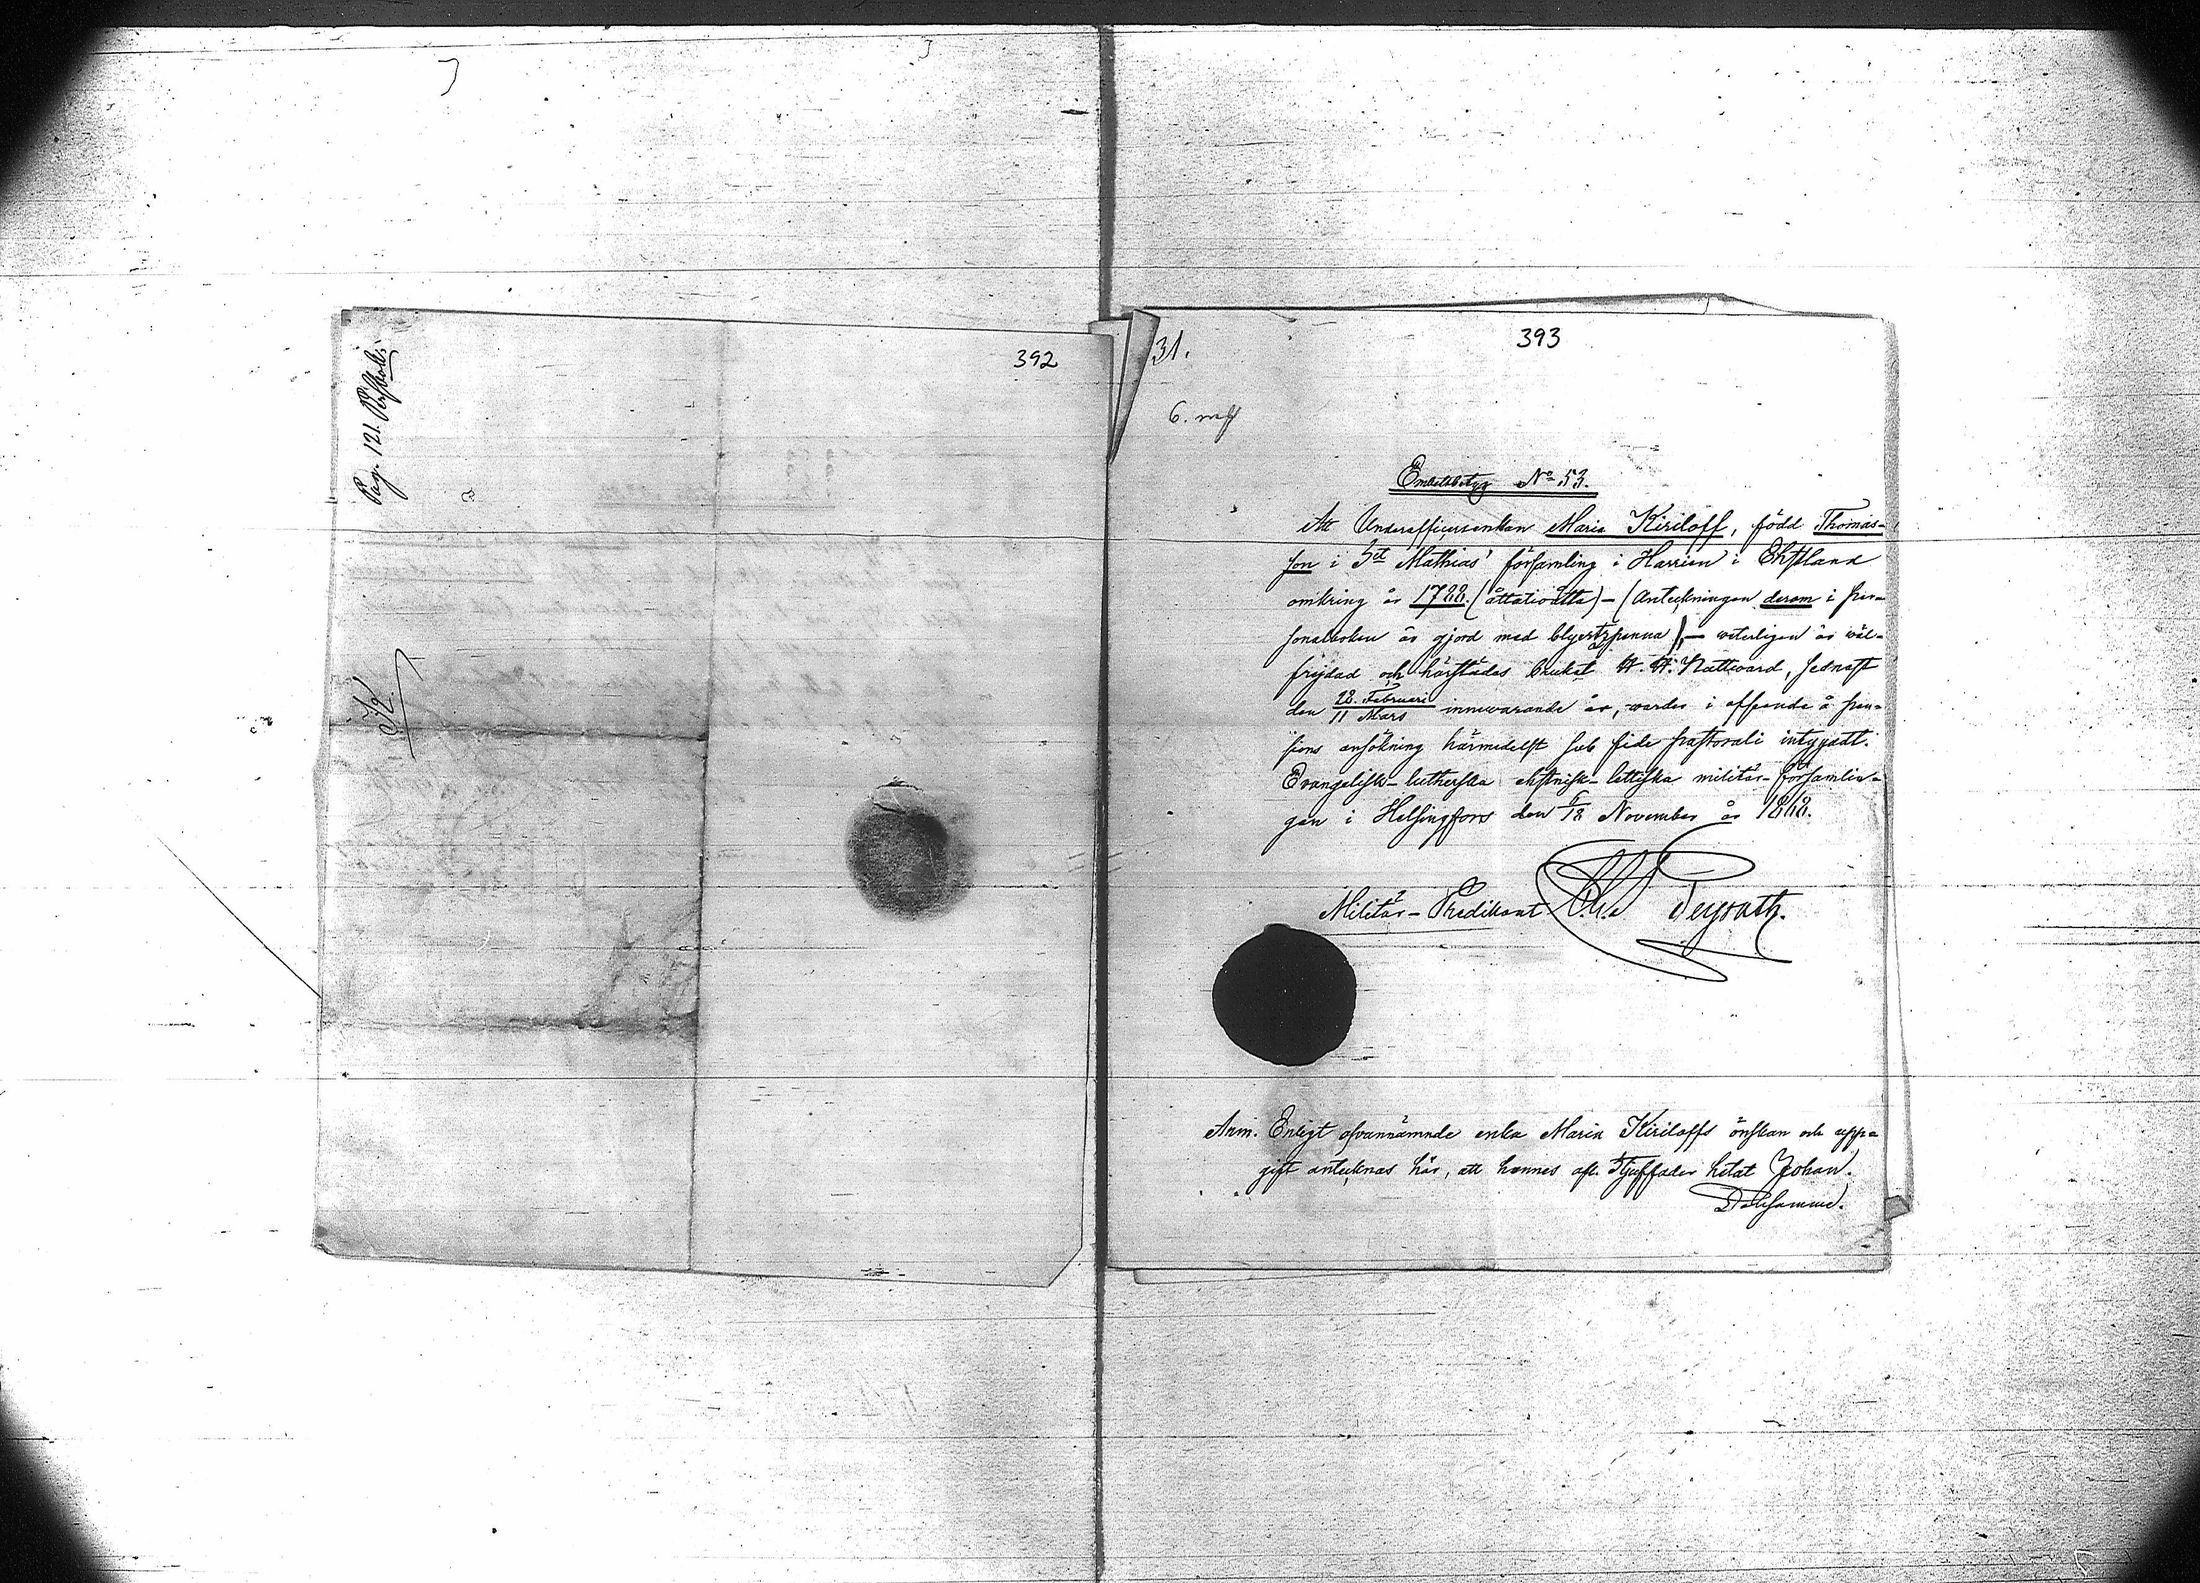 392
Pag. 121.
393
31.
6.
Embetsbetyg No 53.
Att Underofficersenkan Maria Kiriloff, född Thomas-
son i Sct Mathias' församling i Harrien i Ehstland
omkring år 1788. (åttatioåtta) – (Anteckningen derom i per-
sonalboken är gjord med blyertzpenna) – witerligen är wäl-
frejdad och härstädes brukat H. H. Nattward, sednast
den 28. Februari / 11 Mars innewarande år, warder i afseende å pen-
sions ansökning härmedelst sub fide pastorali intygadt.
Evangelisk-lutherska ehstnisk-lettiska militär-församlin-
gen i Helsingfors den 6/18 November år 1868.
Militär-Predikant
Anm. Enligt ofvannämnde enka Maria Kiriloffs önskan och upp-
gift antecknas här, att hennes afl. Styffader hetat Johan.
Densamme.